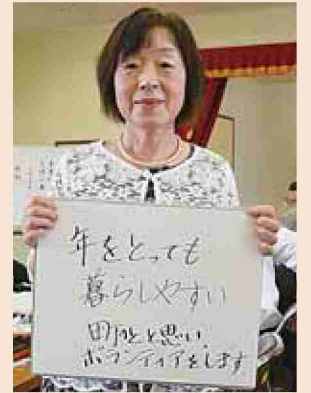 年をとっても
暮らしやすい
町をと思い、
ボランティアをします